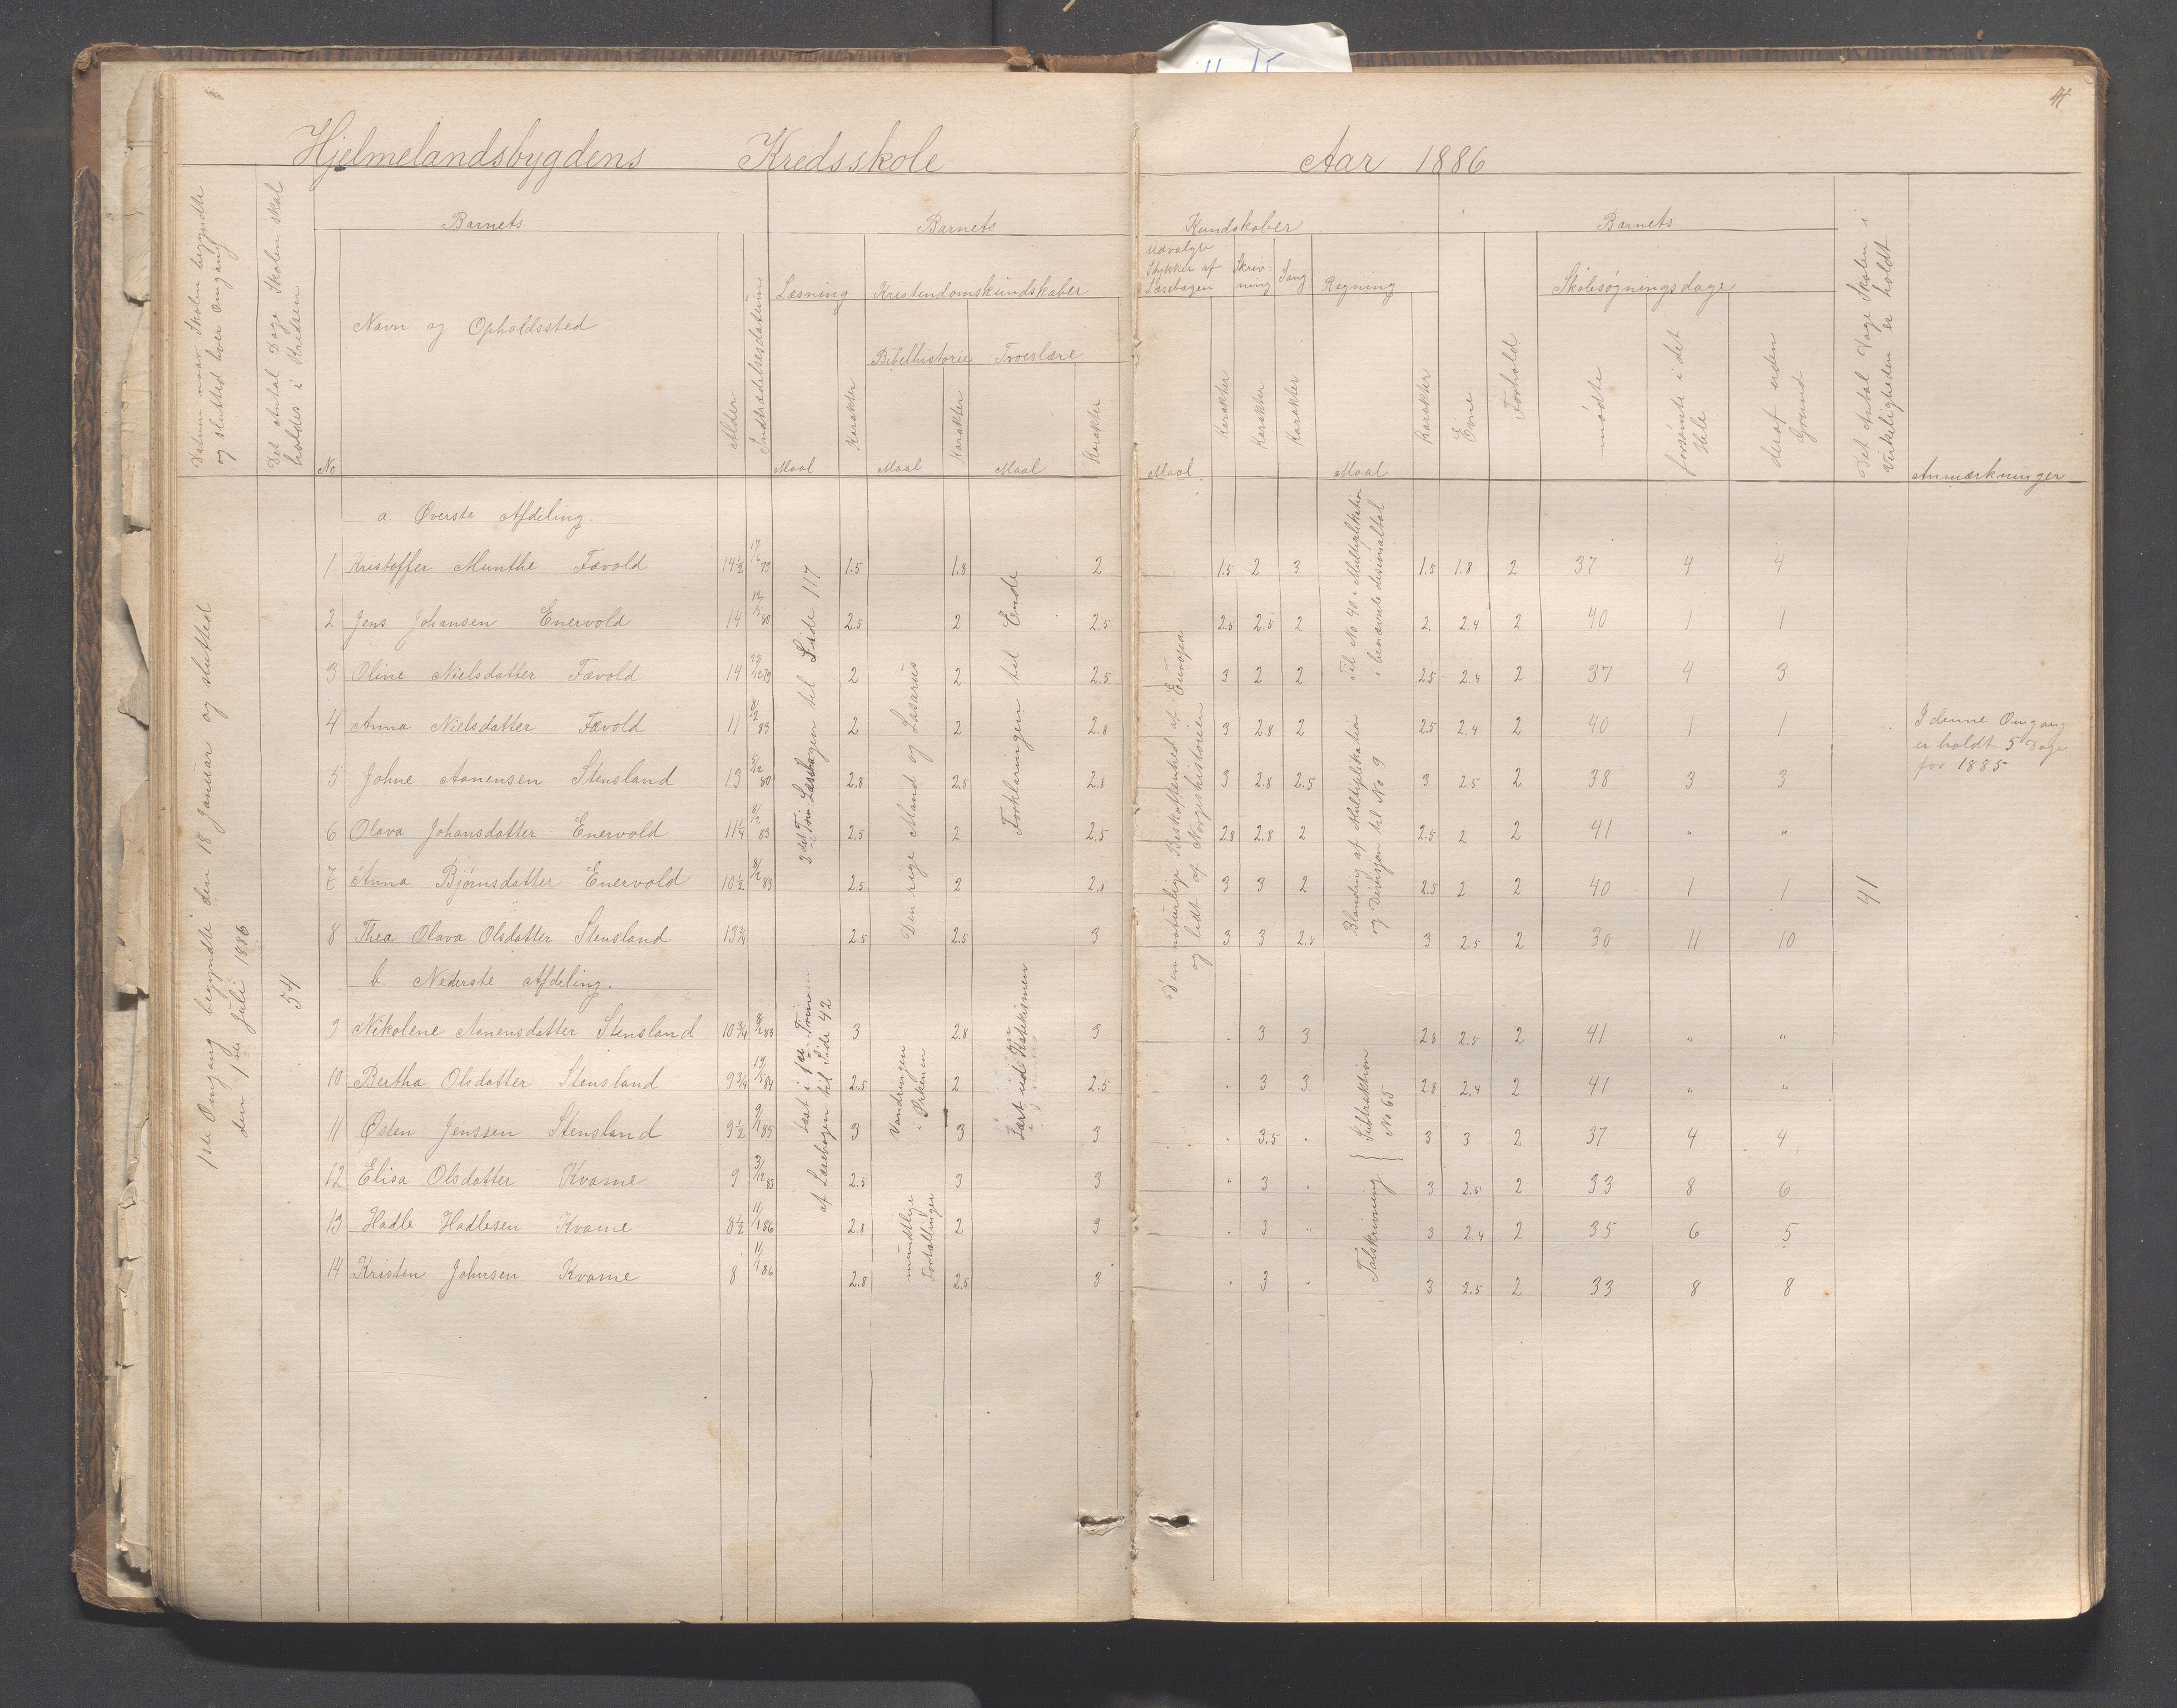 Hjelmelandsbygdens Kredsskole Aar 1886
4
Datum naar Skolen begyndte og sluttet hver Omgang
Det Antal Dage Skolen skal holdes i Kredsen
No
Barnets
Navn og Opholdssted
Alder
Indtrædelsesdatum
Barnets Kundskaber
Læsning
Maal
Karakter
Kristendomskundskaber
Bibelhistorie
Maal
Karakter
Troeslære
Maal
Karakter
Udvalgte Stykker af Læsebogen
Maal
Karakter
Skrivning
Karakter
Sang
Karakter
Regning
Maal
Karakter
Barnets
Evne
Forhold
Skolesøgningsdage
mødte
forsømte i det Hele
deraf uden Grund
Det Antal Dage Skolen i Virkeligheden er holdt
Anmærkninger
1ste Omgang begyndte den 18 Januar og sluttet
den 1ste Juli 1886
54
a. Øverste Afdeling.
1 Kristoffer Munthe Fævold 14½ 79 1.5 1.8 2 1.5 2 3 1.5 1.8 2 37 4 4
2 Jens Johansen Enervold 14 80 2.5 2 2.5 2.5 2.5 2 2 2.4 2 40 1 1
3 Oline Nielsdatter Fævold 14 79 2 2 2.5 3 2 2 2.5 2.4 2 37 4 3
4 Anna Nielsdatter Fævold 11 83 2 2 2.8 3 2.8 2 2.5 2.4 2 40 1 1
5 Johne Aanensen Stensland 13 80 2.8 2.5 2.8 3 2.8 2.5 3 2.5 2 38 3 3
6 Olava Johansdatter Enervold 11¼ 83 2.5 2 2.5 2.8 2.8 2 2.5 2 2 41 " "
7 Anna Bjørnsdatter Enervold 10½ 83 2.5 2 2.8 3 3 2 2.5 2 2 40 1 1
8 Thea Olava Olsdatter Stensland 13¾ 2.5 2.5 3 3 3 2.5 3 2.5 2 30 11 10
b. Nederste Afdeling.
9 Nikolene Aanensdatter Stensland 10¾ 83 3 2.8 3 . 3 3 2.8 2.5 2 41 " "
10 Bertha Olsdatter Stensland 9¾ 84 2.5 2 2.5 . 3 3 2.8 2.4 2 41 " "
11 Østen Jenssen Stensland 9½ 85 3 3 3 . 3.5 . 3 3 2 37 4 4
12 Elisa Olsdatter Kvame 9 83 2.5 3 3 . 3 . 3 2.5 2 33 8 6
13 Hadle Hadlesen Kvame 8½ 11/1 86 2.8 2 3 . 3 . 3 2.4 2 35 6 5
14 Kristen Johnsen Kvame 8 11/1 86 2.8 2.5 3 . 3 . 3 2.5 2 33 8 8
3det Trin Læsebogen til Side 117
Læst i 1ste Trin
af Læsebogen til Side 42
Den rige Mand og Lasarus
Vandringen
i Ørkenen
mundtlige
Fortællinger
Forklaringen til Ende
Læst ud Katekismen
Den naturlige Beskaffenhed af Europa
og lidt af Norgeshistorien
Til No 40 i Multiplikation
i benævnte desimaltal
Blanding af Multiplikation
og Division til No 9
Subtraktion
No 65
Talskrivning
41
I denne Omgang
er holdt 5 Dage
for 1885